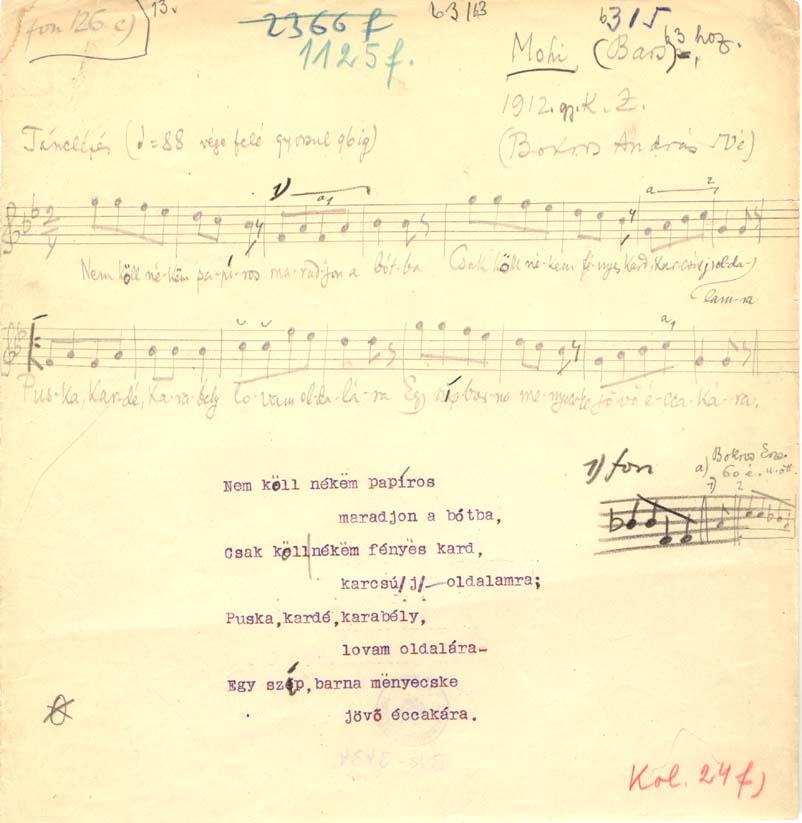 fon 126 c)
13.
2366 f
1125 f.
b3/63
b315
b3 hoz.
Mohi, (Bars),
1912. gy. K. Z.
(Bokros András Vé)
Tánclépés (♩=88 vége felé gyorsul 96ig)
1)
a1
a
2
Nem köll né-këm pa-pí-ros ma-radjon a bót-ba Csak köll né-kem fé-nyes kard, kar-csú(j)ol-da-
lam-ra
a1
Pus-ka, kar-dé, ka-ra-bély lo-vam ol-da-lá-ra Egy szép bar-na me-nyecske jövő é-cca-ká-ra.
1) fon
a) Bokros Erzs.
60 é.
1)
2
Nem köll nékëm papíros
maradjon a bótba,
Csak köll nékëm fényës kard,
karcsú/j/-oldalamra;
Puska,kardé,karabély,
lovam oldalára-
Egy szép,barna mënyecske
jövő éccakára.
Kol. 24 f)